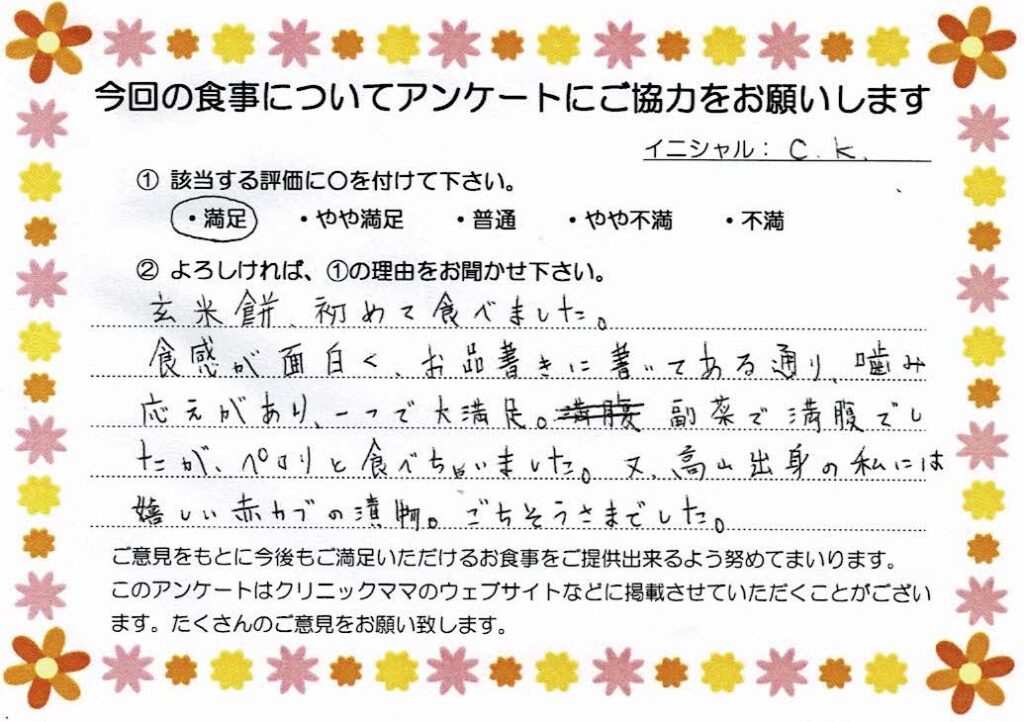 今回の食事についてアンケートにご協力をお願いします
イニシャル： C.K.
① 該当する評価に〇を付けて下さい。
・満足 ・やや満足 ・普通 ・やや不満 ・不満
② よろしければ、①の理由をお聞かせ下さい。
玄米餅、初めて食べました。
食感が面白く、お品書きに書いてある通り、噛み
応えがあり、一つで大満足。満腹 副菜で満腹でし
たが、ペロリと食べちゃいました。又、高山出身の私には
嬉しい赤カブの漬物。ごちそうさまでした。
ご意見をもとに今後もご満足いただけるお食事をご提供出来るよう努めてまいります。
このアンケートはクリニックママのウェブサイトなどに掲載させていただくことがござい
ます。たくさんのご意見をお願い致します。